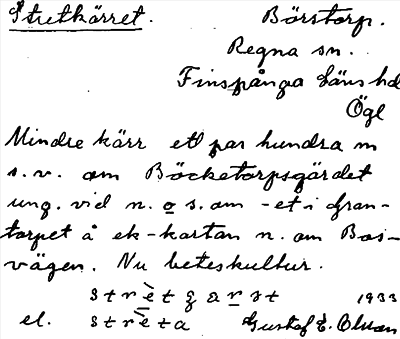 Stretkärret. Börstorp.
Regna sn.
Finspånga läns hd
Ögl
Mindre kärr ett par hundra m
s.v. om Böcketorpsgärdet
ung. vid n. o s. om -et i Gran-
torpet å ek-kartan n. om Bos-
vägen. Nu beteskultur.
1933
el. Gustaf E. Olsson